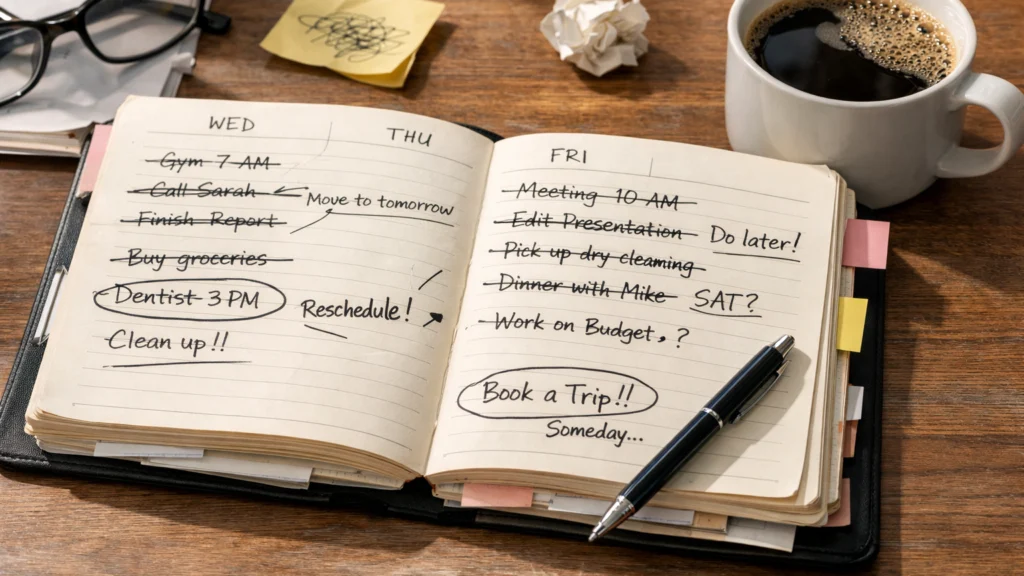 WED
THU
Gym 7 AM
Call Sarah
Move to tomorrow
Finish Report
Buy groceries
Dentist 3 PM
Reschedule!
Clean up!!
FRI
Meeting 10 AM
Edit Presentation
Do later!
Pick up dry cleaming
Dinner with Mike
SAT?
Work on Budget, ?
Book a Trip!!
Someday...